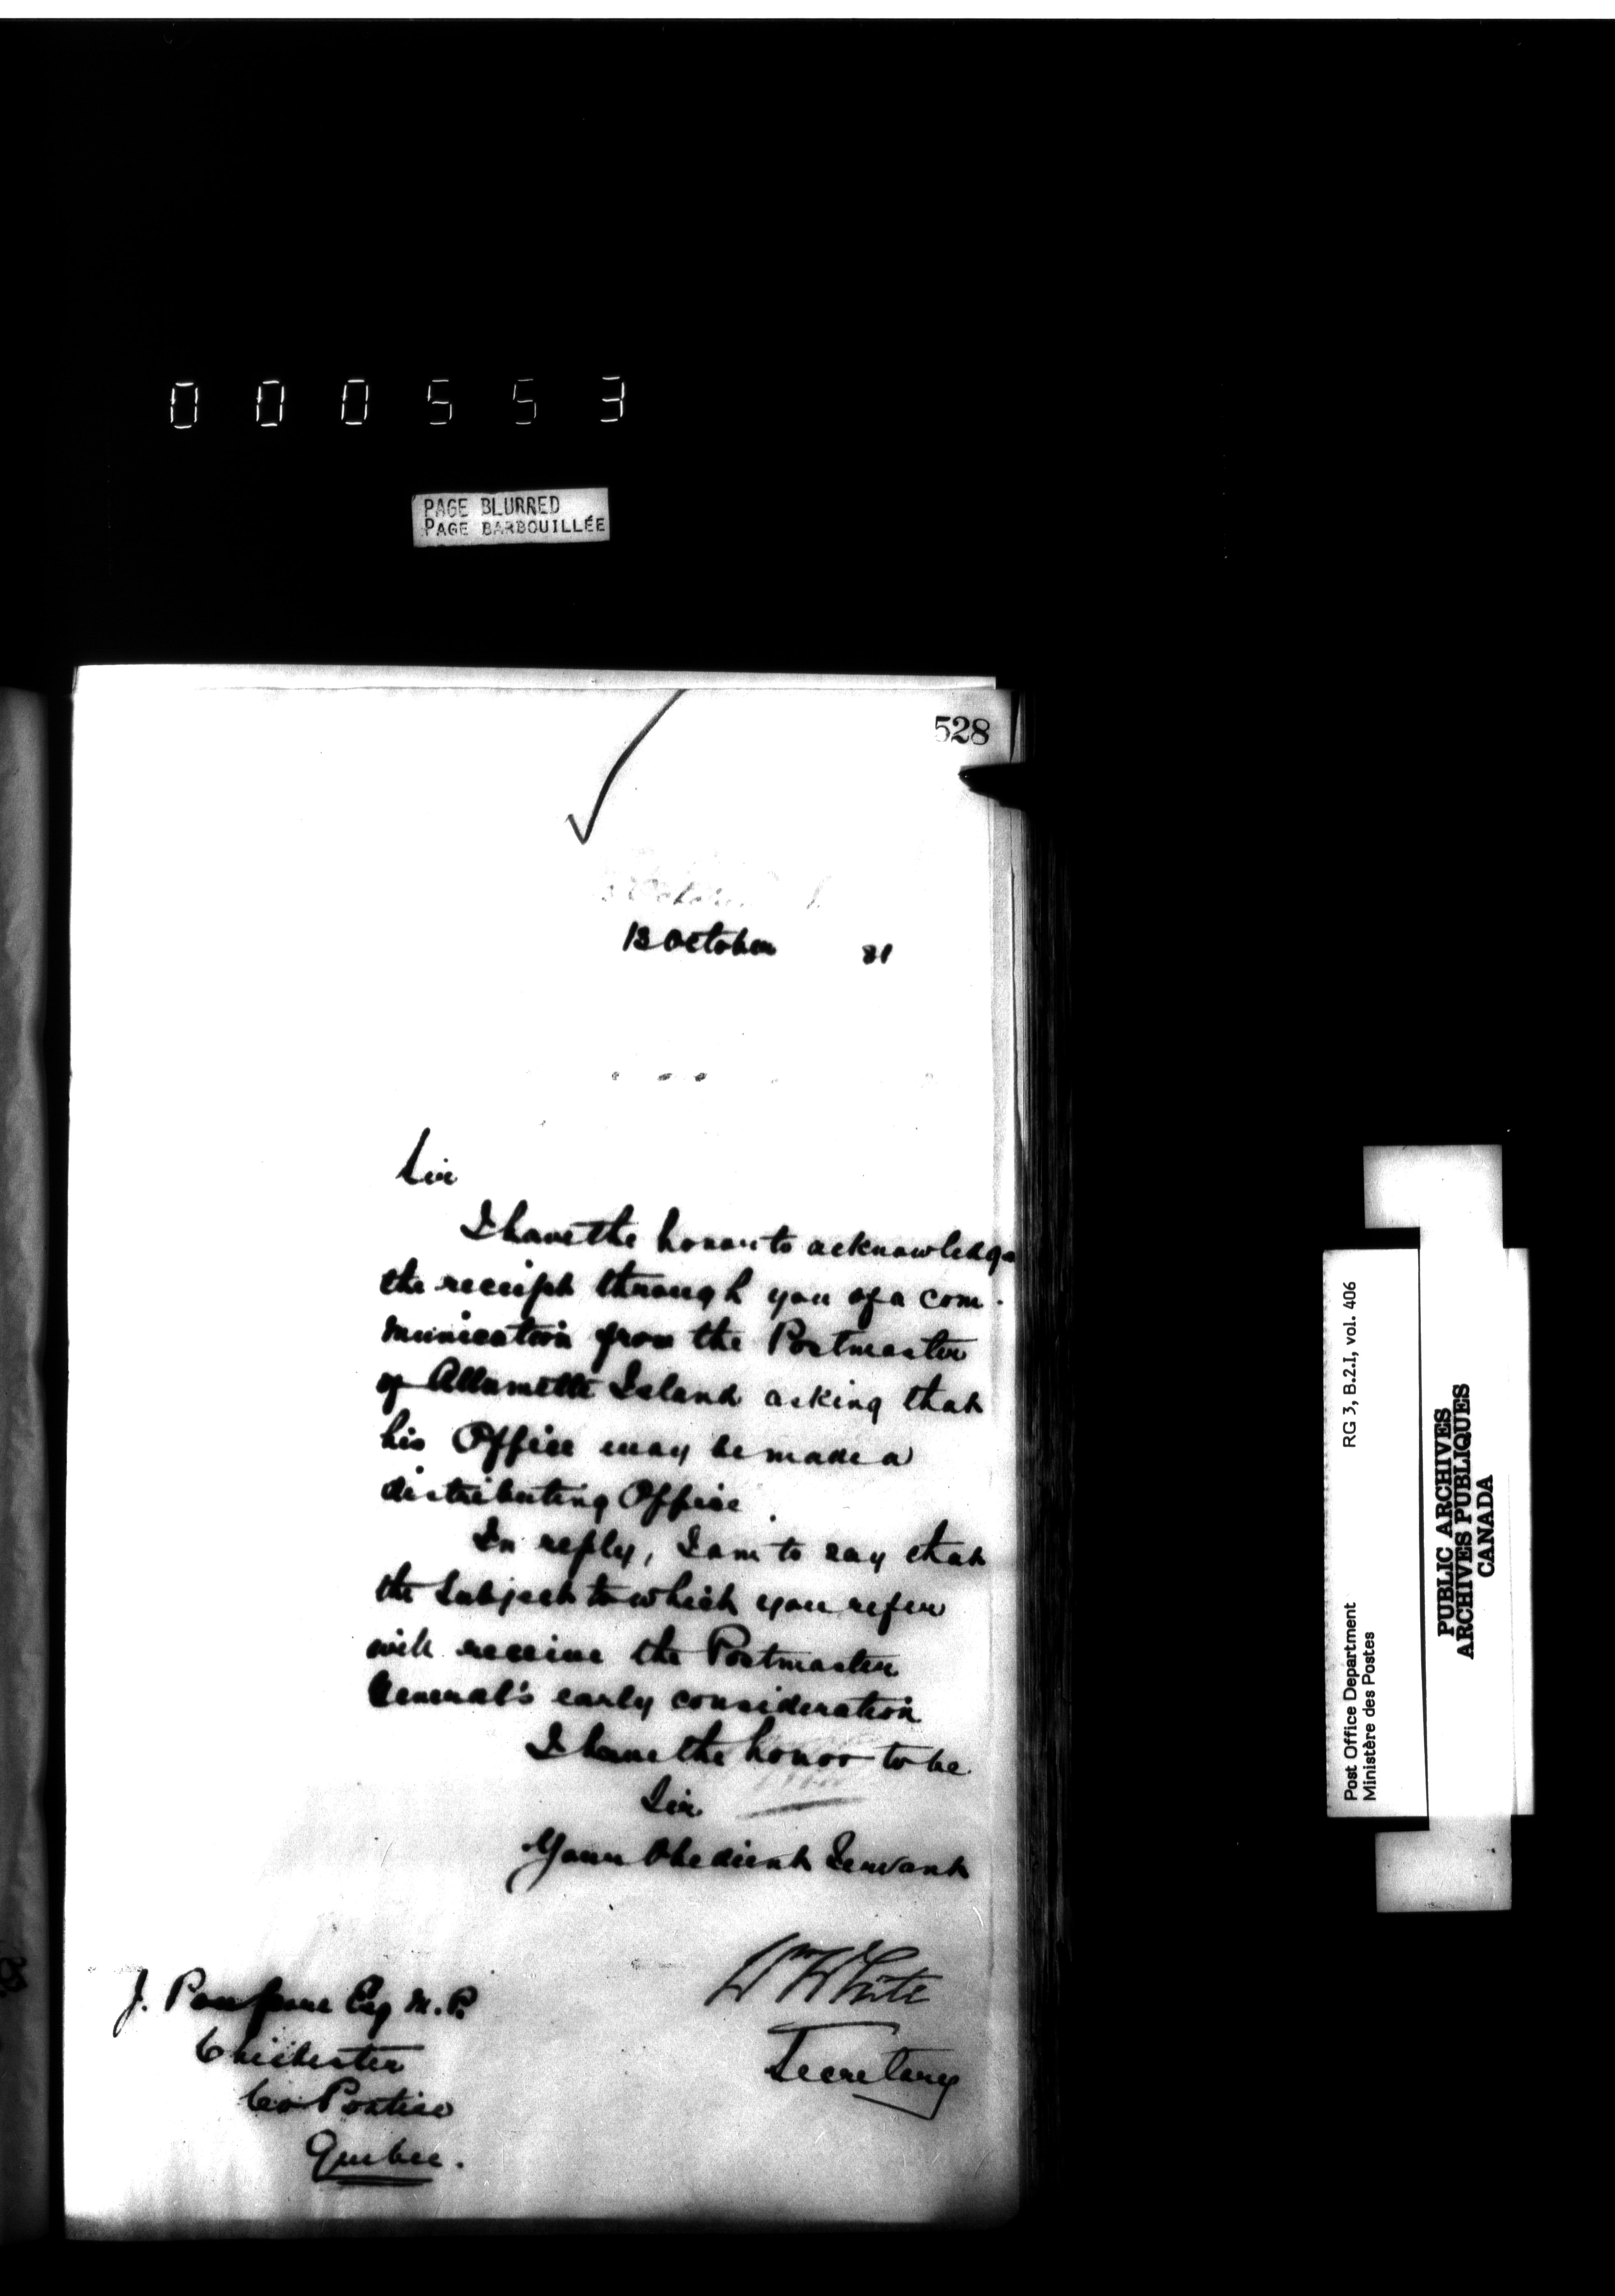 000553
PAGE BLURRED
PAGE BARBOUILLÉE
528
13 October 81
Sir
I have the honor to acknowledge
the receipt through you of a com-
munication from the Postmaster
of Allumette Island asking that
his Office may be made a
distributing Office.
In reply, I am to say that
the subject to which you refer
will receive the Postmaster
General's early consideration
I have the honor to be
Sir
Your Obedient Servant
Wm White
Secretary
J. Poupore Esq M.P.
Chichester
Co Pontiac
Quebec.
Post Office Department RG 3, B.2.I, vol. 406
Ministère des Postes
PUBLIC ARCHIVES
ARCHIVES PUBLIQUES
CANADA